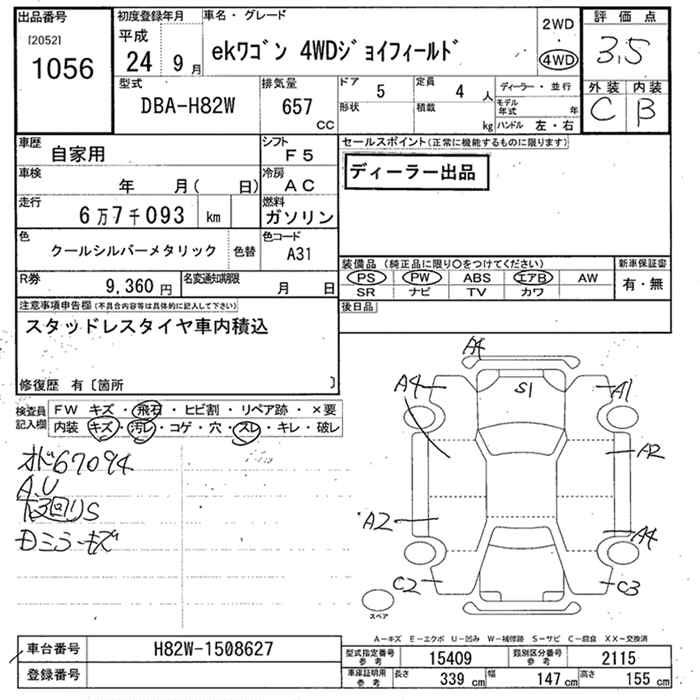 出品番号
[2052]
1056
初度登録年月
平成
24 9月
車名・グレード
ekワゴン 4WDジョイフィールド
2WD
・
4WD
評価点
3.5
外装 内装
C B
型式
DBA-H82W
排気量
657
CC
ドア 5
形状
定員 4 人
積載 kg
ディーラー・並行
モデル年式 年
ハンドル 左・右
車歴 自家用
シフト F5
車検 年 月( 日)
冷房 AC
走行 6万7千093 km
燃料 ガソリン
色 クールシルバーメタリック 色替
色コード A31
R券 9,360円
名変通知期限 月 日
セールスポイント(正常に機能するものに限ります)
ディーラー出品
装備品(純正品に限り○をつけてください)
PS PW ABS エアB AW
SR ナビ TV カワ
新車保証書
有・無
後日品
注意事項申告欄(不具合内容等は具体的に記入して下さい)
スタッドレスタイヤ車内積込
修復歴 有〔箇所 〕
検査員記入欄
FW キズ・飛石・ヒビ割・リペア跡・×要
内装 キズ・汚レ・コゲ・穴・スレ・キレ・破レ
オド67094
A.U
下回りS
Dミラーキズ
A4
A4
S1
A1
A2
A2
A4
C2
C3
スペア
A-キズ E-エクボ U-凹み W-補修跡 S-サビ C-腐食 XX-交換済
車台番号 H82W-1508627
登録番号
型式指定番号 参考 15409
類別区分番号 参考 2115
車庫証明用 参考 長さ 339 cm 幅 147 cm 高さ 155 cm